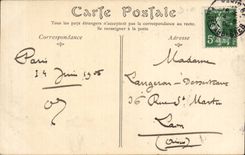 Carte Postale
Tous les pays étrangers n'acceptent pas la correspondance au recto.
Se renseigner à la poste
Correspondance
Adresse
Paris
14 Juin 1908
Madame
36 Rue St Martin
Laon
(Aisne)
5